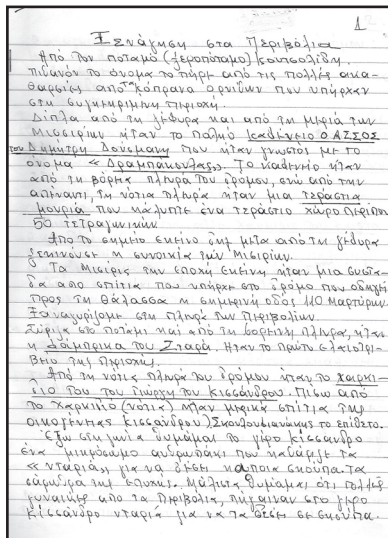 1
Ξενάγηση στα Περιβόλια
Από τον ποταμό (ξεροπόταμο) Κουτσολίδη.
πιθανόν το όνομα το πήρε από τις πολλές ακα-
θαρσίες από κόπρανα ορνίθων που υπήρχαν
στη συγκεκριμένη περιοχή.
Δίπλα από τη γέφυρα και από τη μεριά των
Μισσιρίων ήταν το παλιό καφενείο ο ΑΣΣΟΣ
του Δημήτρη Δούσμανη που ήταν γνωστός με το
όνομα « Δραμπαπούλας». Το καφενείο ήταν
από τη βόρεια πλευρά του δρόμου, ενώ από την
απέναντι, τη νότια πλευρά ήταν μια τεράστια
μουριά που κάλυπτε ένα τεράστιο χώρο περίπου
50 τετραγωνικών
Από το σημείο εκείνο και μετά από τη γέφυρα
ξεκινούσε η συνοικία των Μισιρίων.
Τα Μισίρια την εποχή εκείνη ήταν μια συστά-
δα από σπίτια που υπήρχε στο δρόμο που οδηγεί
προς τη θάλασσα η σημερινή οδός 110 Μαρτύρων.
Ξαναγυρίζομε στη πλευρά των Περιβολίων.
Ξύριζα στο ποτάμι και από τη βορεινή πλευρά, ήταν
η φάμπρικα του Σταρά. Ήταν το πρώτο ελαιοτρι-
βείο της περιοχής.
Από τη νότια πλευρά του δρόμου ήταν το χαρκι-
διό του του Γιώργη του Κισσάνδρου. Πίσω από
το χαρκιδιό (νότια) ήταν μερικά σπίτια της
οικογένειας Κισσάνδρου) Σκουλουδιανάκης το επίθετο.
Έξω στη γωνία θυμάμαι το γέρο Κίσσανδρο
ένα μικρόσωμο ανθρωπάκι που καθάριζε τα
« νταριά», για να δέσει κάποια σκούπα. τα
σάρωθρα της εποχής. Μάλιστα θυμάμαι ότι πολλές
γυναίκες από τα Περιβόλια, πήγαιναν στο γέρο
Κίσσανδρο νταριά για να τα δέσει σε σκούπα.